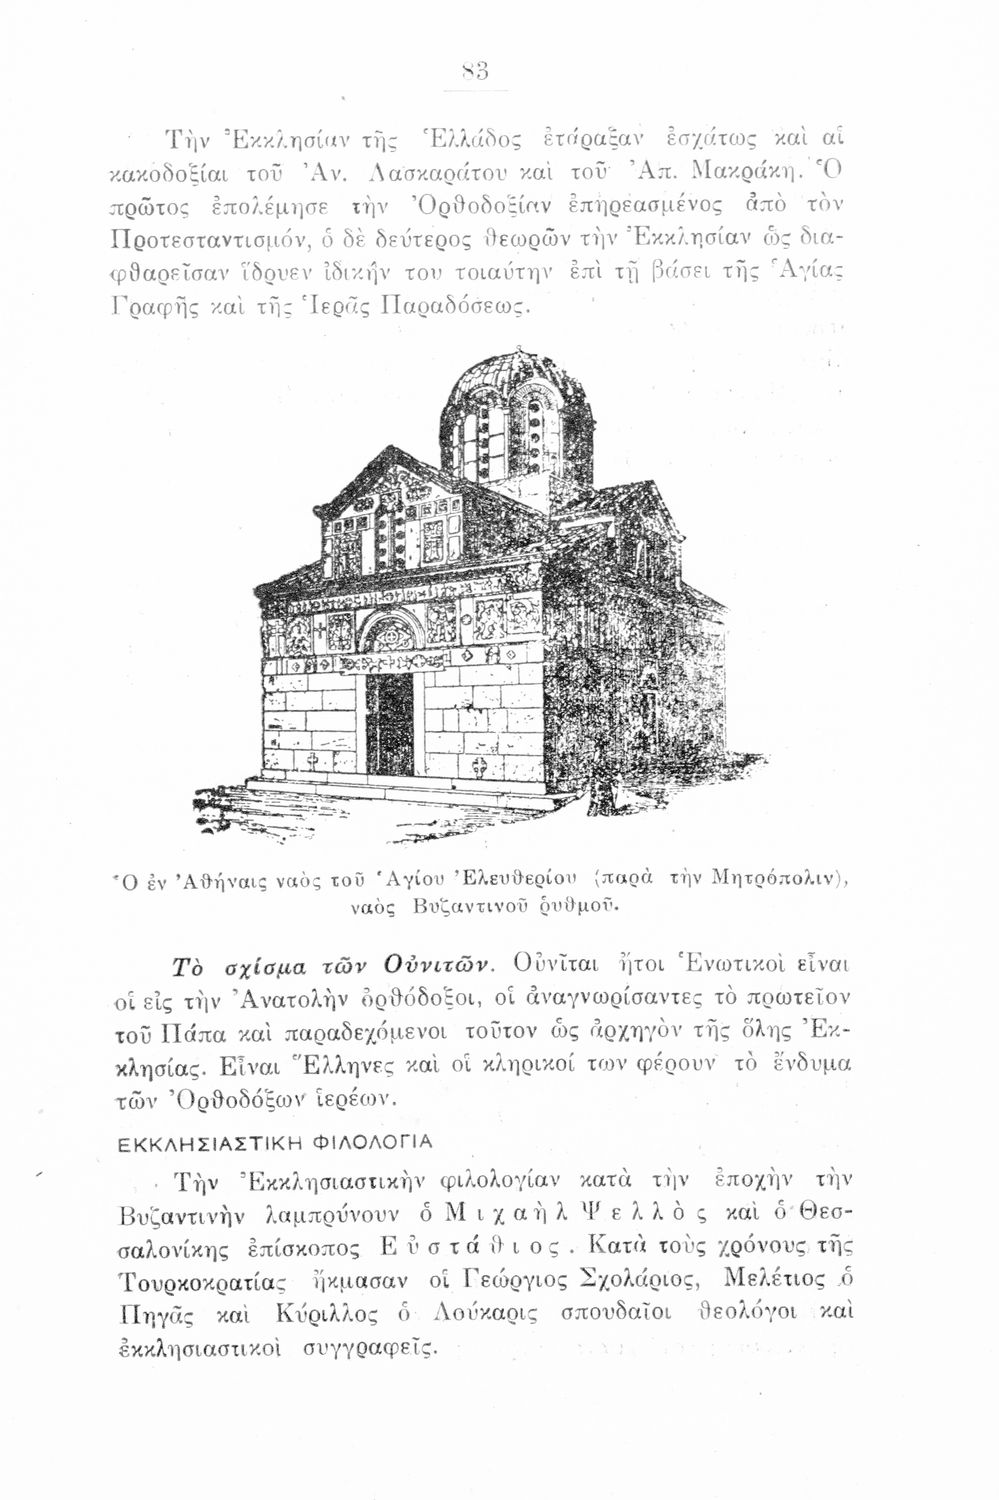 83
Τὴν Ἐκκλησίαν τῆς Ἑλλάδος ἐτάραξαν ἐσχάτως καὶ αἱ
κακοδοξίαι τοῦ Ἀν. Λασκαράτου καὶ τοῦ Ἀπ. Μακράκη. Ὁ
πρῶτος ἐπολέμησε τὴν Ὀρθοδοξίαν ἐπηρεασμένος ἀπὸ τὸν
Προτεσταντισμόν, ὁ δὲ δεύτερος θεωρῶν τὴν Ἐκκλησίαν ὡς δια-
φθαρεῖσαν ἵδρυεν ἰδικήν του τοιαύτην ἐπὶ τῇ βάσει τῆς Ἁγίας
Γραφῆς καὶ τῆς Ἱερᾶς Παραδόσεως.
Ὁ ἐν Ἀθήναις ναὸς τοῦ Ἁγίου Ἐλευθερίου (παρὰ τὴν Μητρόπολιν),
ναὸς Βυζαντινοῦ ῥυθμοῦ.
Τὸ σχίσμα τῶν Οὐνιτῶν. Οὐνῖται ἤτοι Ἑνωτικοὶ εἶναι
οἱ εἰς τὴν Ἀνατολὴν ὀρθόδοξοι, οἱ ἀναγνωρίσαντες τὸ πρωτεῖον
τοῦ Πάπα καὶ παραδεχόμενοι τοῦτον ὡς ἀρχηγὸν τῆς ὅλης Ἐκ-
κλησίας. Εἶναι Ἕλληνες καὶ οἱ κληρικοί των φέρουν τὸ ἔνδυμα
τῶν Ὀρθοδόξων ἱερέων.
ΕΚΚΛΗΣΙΑΣΤΙΚΗ ΦΙΛΟΛΟΓΙΑ
Τὴν Ἐκκλησιαστικὴν φιλολογίαν κατὰ τὴν ἐποχὴν τὴν
Βυζαντινὴν λαμπρύνουν ὁ Μιχαὴλ Ψελλὸς καὶ ὁ Θεσ-
σαλονίκης ἐπίσκοπος Εὐστάθιος. Κατὰ τοὺς χρόνους τῆς
Τουρκοκρατίας ἤκμασαν οἱ Γεώργιος Σχολάριος, Μελέτιος ὁ
Πηγᾶς καὶ Κύριλλος ὁ Λούκαρις σπουδαῖοι θεολόγοι καὶ
ἐκκλησιαστικοὶ συγγραφεῖς.